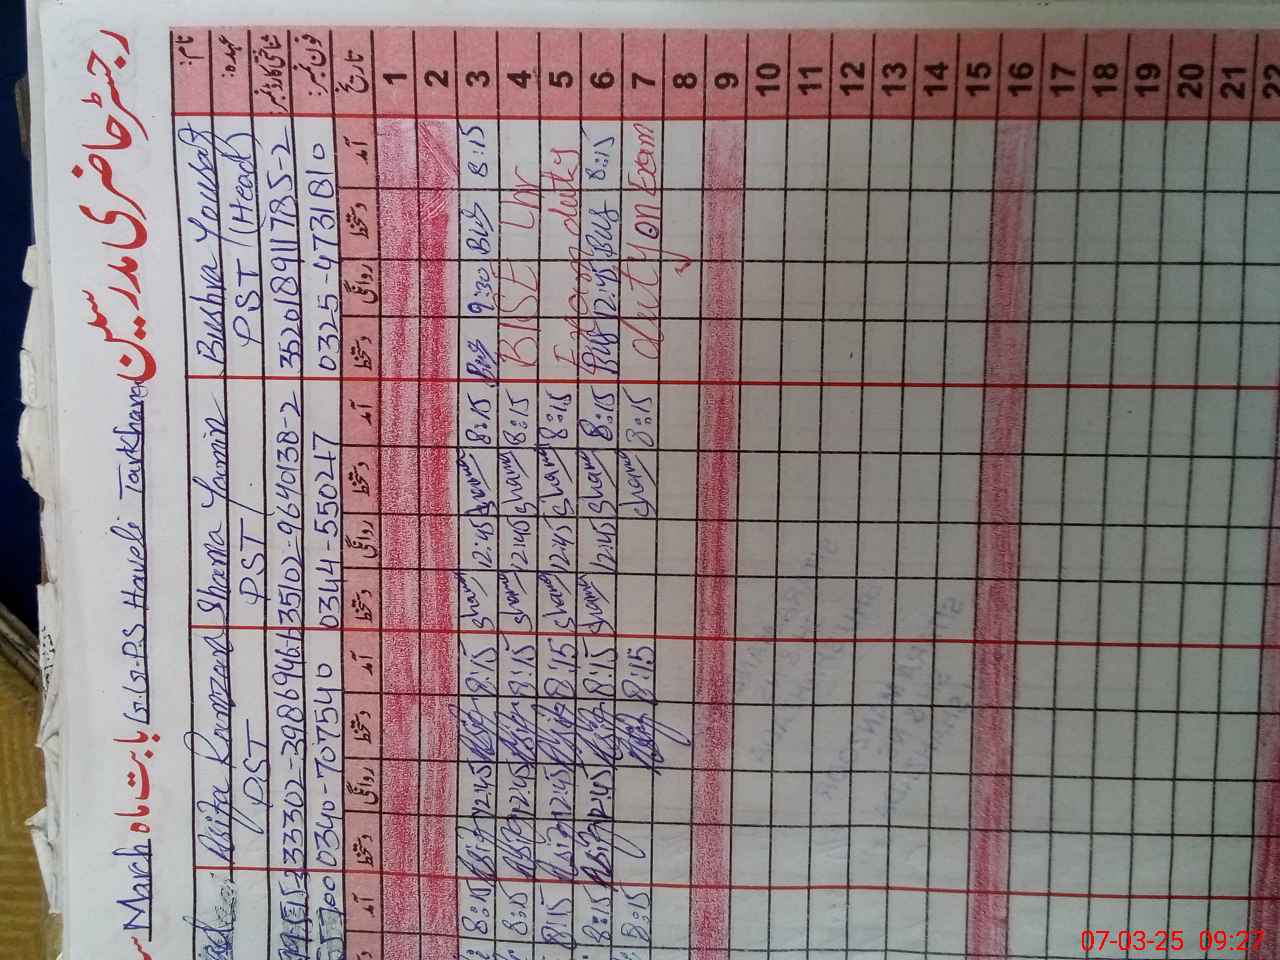 رجسٹر حاضری مدرسین
بابت ماہ March
G.G.P.S Haveli Tarkhana
نام: Bushra Yousaf Shama Yamin Asifa Ramzan
عہدہ: PST (Head) PST PST
شناختی کارڈ نمبر:
فون نمبر: 0325-4731810 0344-5502 0340-7077540
تاریخ آمد دستخط روانگی دستخط آمد دستخط روانگی دستخط آمد دستخط روانگی دستخط آمد
1
2
3 8:15 Bus 9:30 Bus 8:15 Shama 12:45 Shama 8:15 Asifa 12:45 Asifa 8:15
4 BISE Lhr 8:15 Shama 12:45 Shama 8:15 Asifa 12:45 Asifa 8:15
5 Exam duty 8:15 Shama 12:45 Shama 8:15 Asifa 12:45 Asifa 8:15
6 8:15 Bus 12:45 Bus 8:15 Shama 12:45 Shama 8:15 Asifa 12:45 Asifa 8:15
7 on Exam duty 8:15 Shama 8:15 Asifa 8:15
8
9
10
11
12
13
14
15
16
17
18
19
20
21
22
07-03-25 09:27